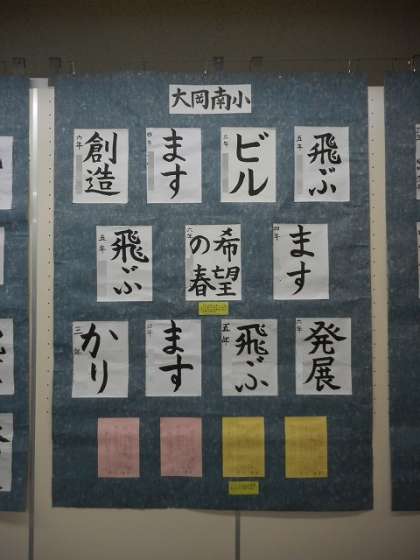 大岡南小
飛ぶ
五年
ビル
ます
四年
創造
六年
ます
四年
希望
の春
六年
飛ぶ
五年
発展
六年
飛ぶ
五年
ます
四年
かり
三年